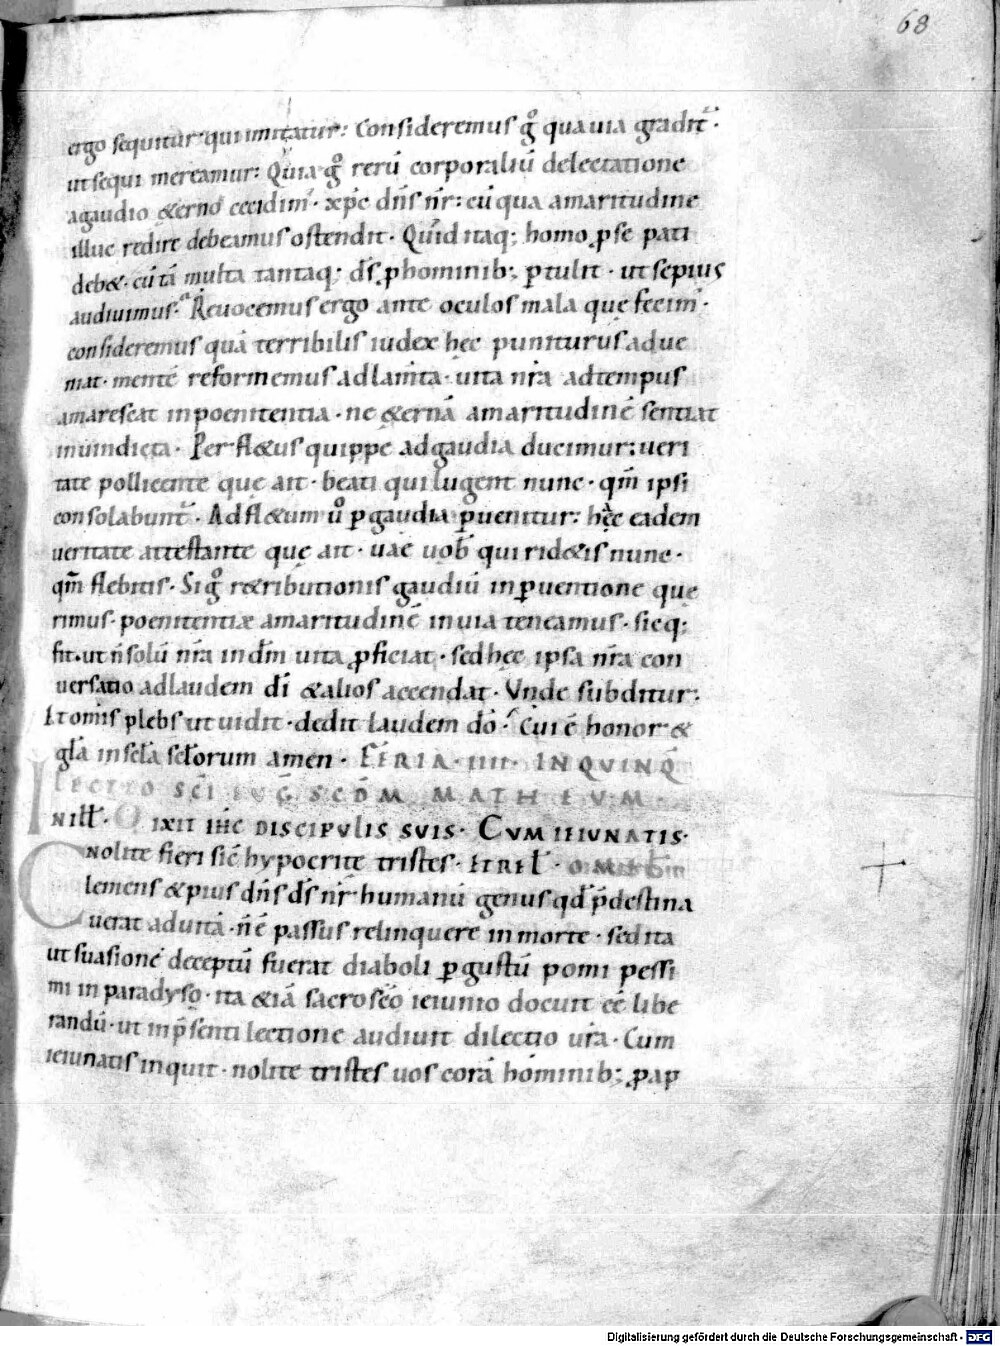 68
ergo sequitur: qui imitatur: Consideremus gͦ qua uia gradit᷑ ·
ut sequi mereamur: Quia gͦ rerū corporaliū delectatione
a gaudio &erno cecidim᷒ · xp̄c dn̄s nr̄: cū qua amaritudine
illuc redire debeamus ostendit · Quid itaq; homo ꝓ se pati
deb& · cū tā multa tantaq; ds̄ ꝓ hominib; ꝑtulit · ut sepius
audiuimus · Reuocemus ergo ante oculos mala que fecim᷒ ·
consideremus quā terribilis iudex hęc puniturus adue
niat · mentē reformemus ad lam̄ta · uita nr̄a ad tempus
amarescat in poenitentia · ne &ernā amaritudinē sentiat
in uindicta · Per fl&us quippe ad gaudia ducimur: ueri
tate pollicente que ait · beati qui lugent nunc · qm̄ ipsi
consolabunt᷑ · Ad fl&um ū ꝑ gaudia ꝑuenitur: hęc eadem
ueritate attestante que ait · uae uob̄ qui rid&is nunc ·
qm̄ flebitis · Si gͦ r&ributionis gaudiū in ꝑuentione que
rimus · poenitentiæ amaritudinē in uia teneamus · sicq;
fit · ut n̄ solū nr̄a in dm̄ uita ꝓficiat · sed hęc ipsa nr̄a con
uersatio ad laudem dī & alios accendat · Vnde subditur:
Et omīs plebs ut uidit · dedit laudem dō · Cui ē honor &
gl̄a in scl̄a scl̄orum amen · FERIA · IIII · IN QVINQ̄
LECTIO SC̄I EVḠ SCD̄M MATHEVM ·
IN ILL̄ · DIXIT IHC̄ DISCIPVLIS SVIS · CVM IEIVNATIS ·
nolite fieri sic̄ hypocritę tristes · ET REL̄ ·
Clemens & pius dn̄s ds̄ nr̄ · humanū genus qd̄ p̄destina
uerat ad uitā · n̄ ē passus relinquere in morte · sed ita
ut suasione deceptū fuerat diaboli ꝑ gustū pomi pessi
mi in paradyso · ita &iā sacro sc̄o ieiunio docuit eē libe
randū · ut in p̄senti lectione audiuit dilectio ur̄a · Cum
ieiunatis inquit · nolite tristes uos corā hominib; ꝓ ap
Digitalisierung gefördert durch die Deutsche Forschungsgemeinschaft - DFG